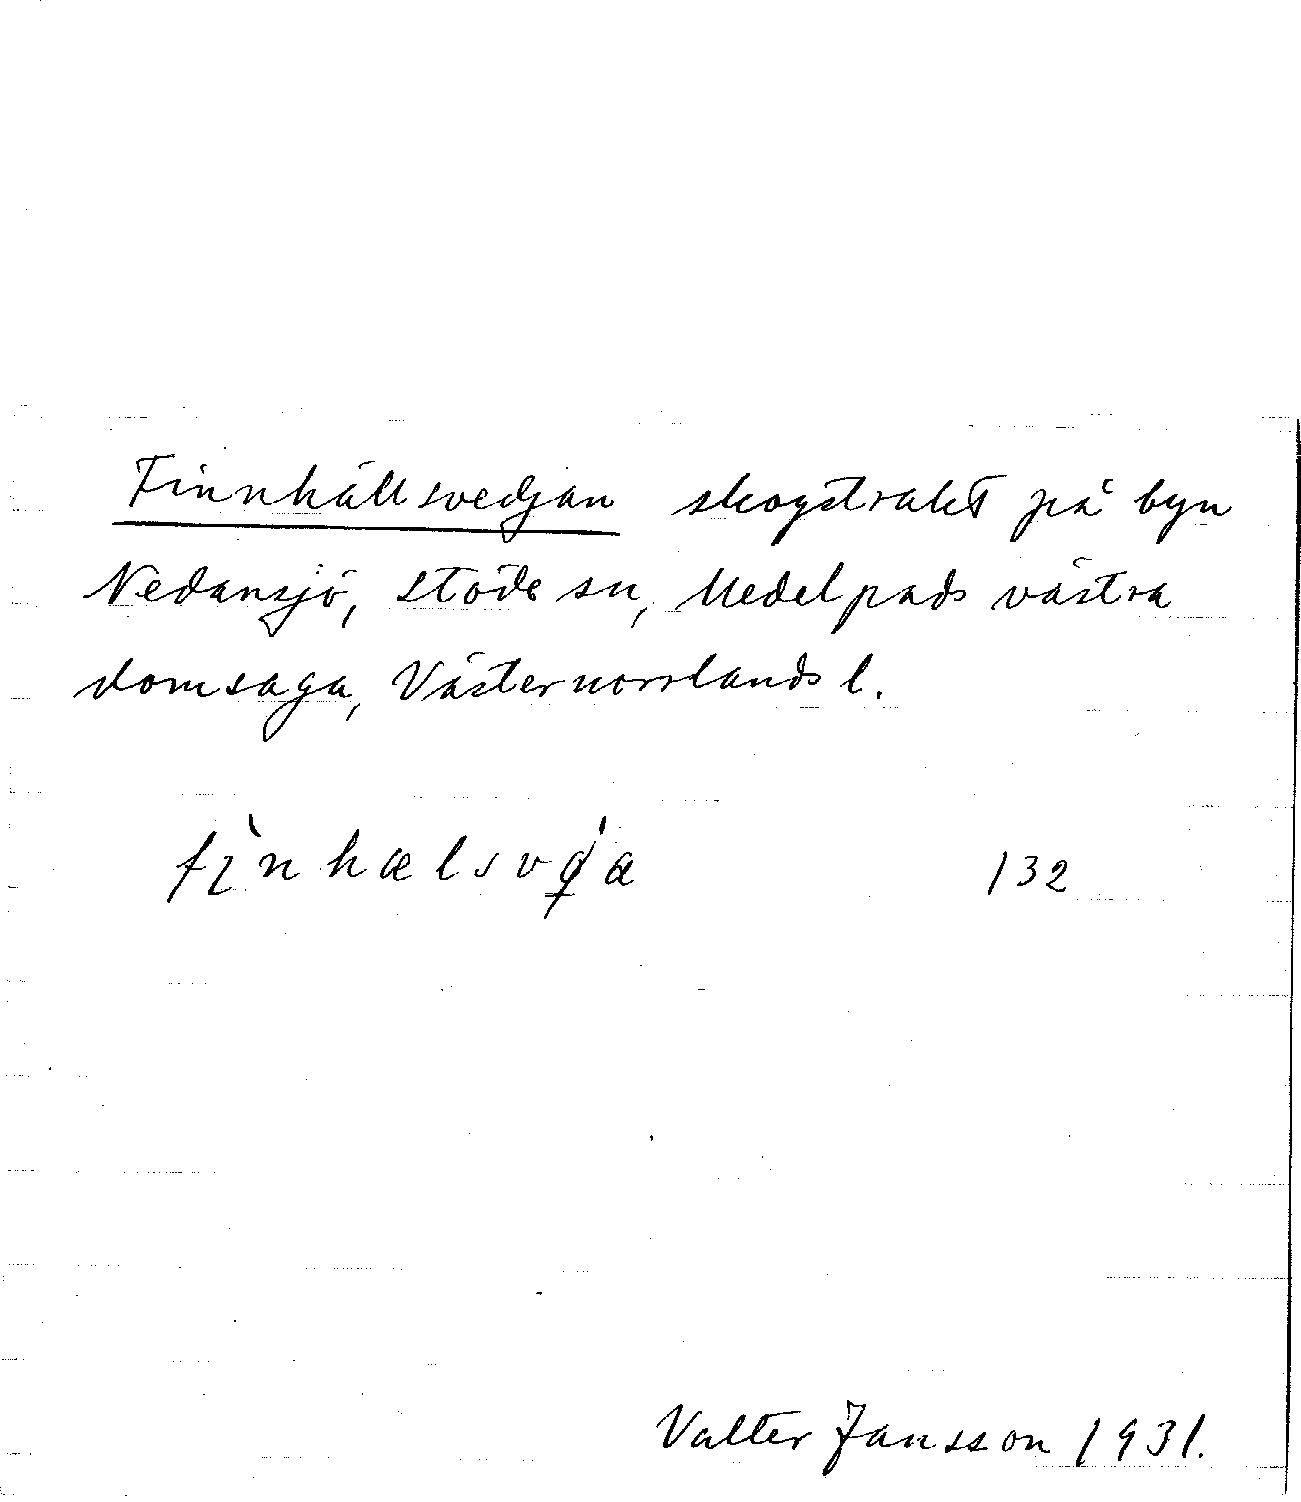 Finnhällsvedjan skogstrakt på byn
Nedansjö, Stöde sn, Medelpads västra
domsaga, Västernorrlands l.
132
Valter Jansson 1931.